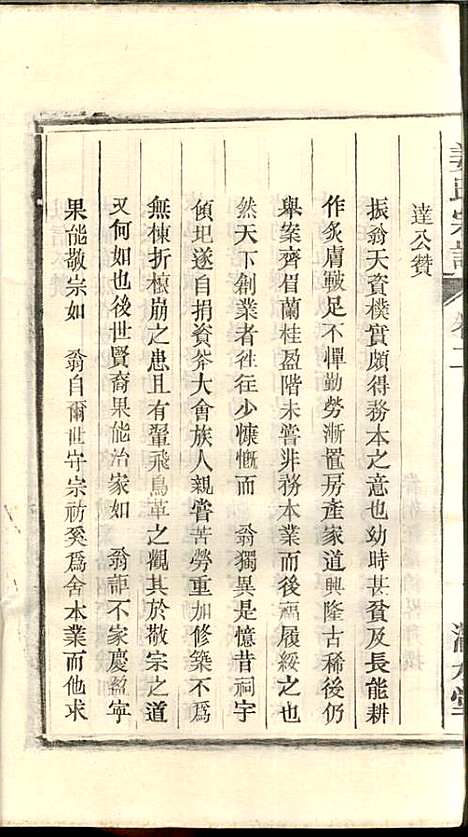 達公贊
振翁天資樸實頗得務本之意也幼時甚貧及長能耕
作炙膚皸足不憚勤勞漸置房產家道興隆古稀後仍
舉案齊眉蘭桂盈階未嘗非務本業而後福履綏之也
然天下創業者往往少慷慨而 翁獨異是憶昔祠宇
傾圯遂自捐資斧大會族人親嘗苦勞重加修築不爲
無棟折榱崩之患且有翬飛鳥革之觀其於敬宗之道
又何如也後世賢裔果能治家如 翁詎不家慶盈寧
果能敬宗如 翁自爾世守宗祊奚爲舍本業而他求